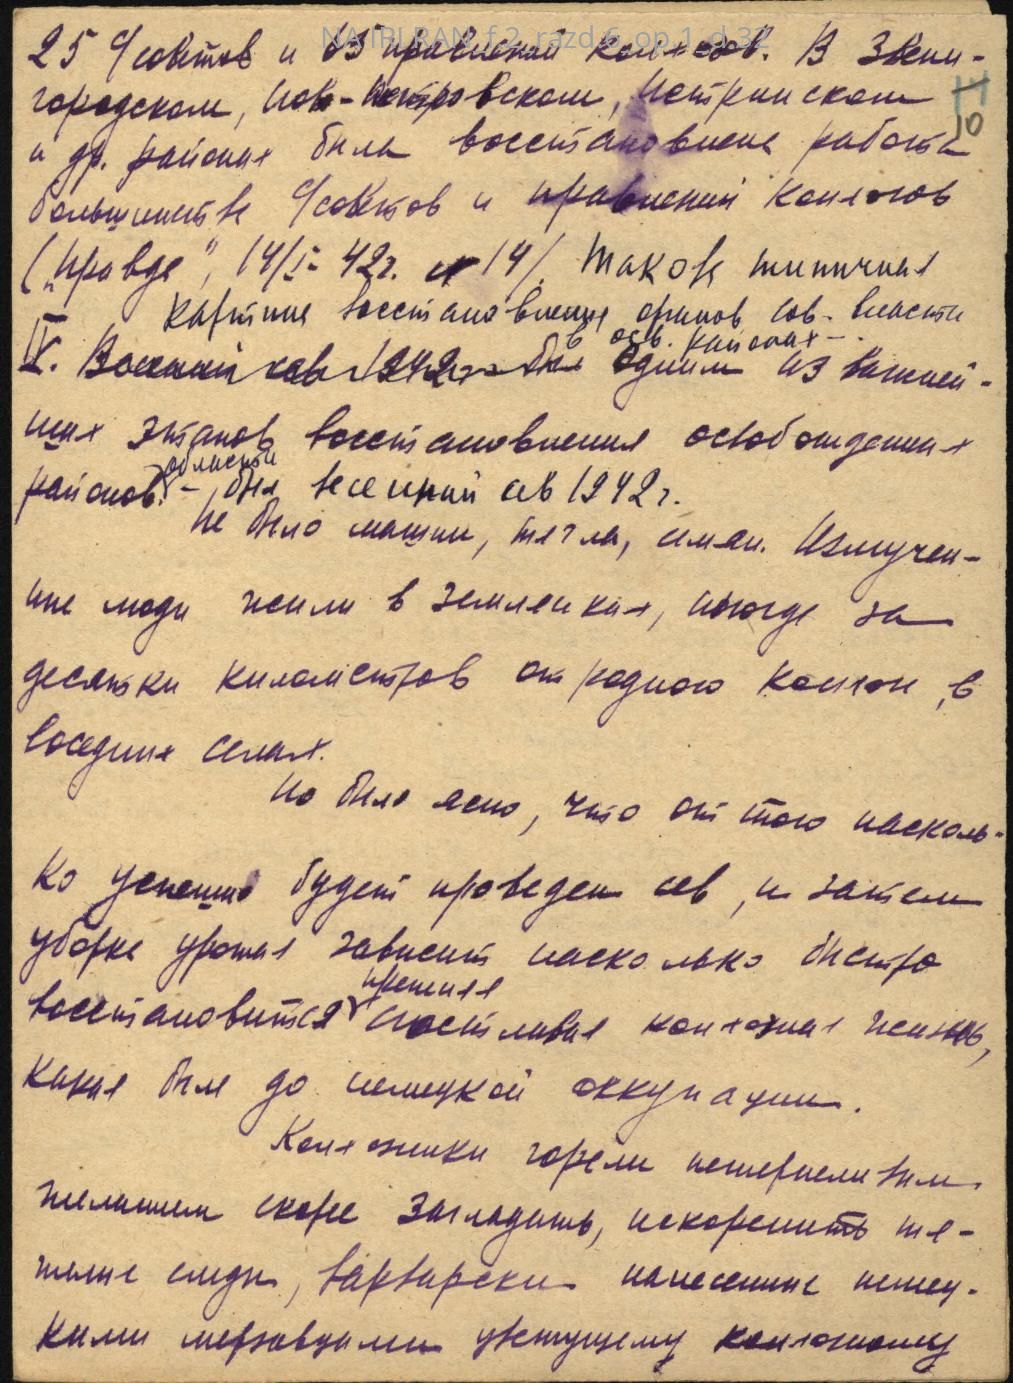 NA IRI RAN f.2 razd.6 op.1 d.32
25 с/советов и 65 правлений колхозов. В Звени-
городском, Ново-Петровском, Истринском
и др. районах была восстановлена работа
большинства с/советов и правлений колхозов
("Правда", 14/I-42г. № 14/. Такова типичная
картина восстановления органов сов. власти
в осв. районах.
IV. Весенний сев 1942 г. был одним из важней-
ших этапов восстановления освобожденных
районов области был весенний сев 1942 г.
Не было машин, тягла, семян. Измучен-
ные люди жили в землянках, иногда за
десятки километров от родного колхоза, в
соседних селах.
Но было ясно, что от того насколь-
ко успешно будет проведен сев, и затем
уборка урожая зависит насколько быстро
восстановится прежняя счастливая колхозная жизнь,
какая была до немецкой оккупации.
Колхозники горели нетерпеливым
желанием скорее загладить, искоренить тя-
желые следы, варварски нанесенные немец-
кими мерзавцами цветущему колхозному